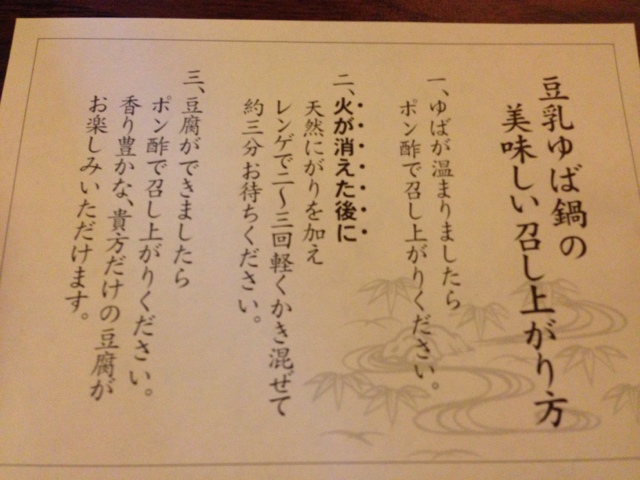 豆乳ゆば鍋の
美味しい召し上がり方
一、ゆばが温まりましたら
ポン酢で召し上がりください。
二、火が消えた後に
天然にがりを加え
レンゲで二～三回軽くかき混ぜて
約三分お待ちください。
三、豆腐ができましたら
ポン酢で召し上がりください。
香り豊かな、貴方だけの豆腐が
お楽しみいただけます。